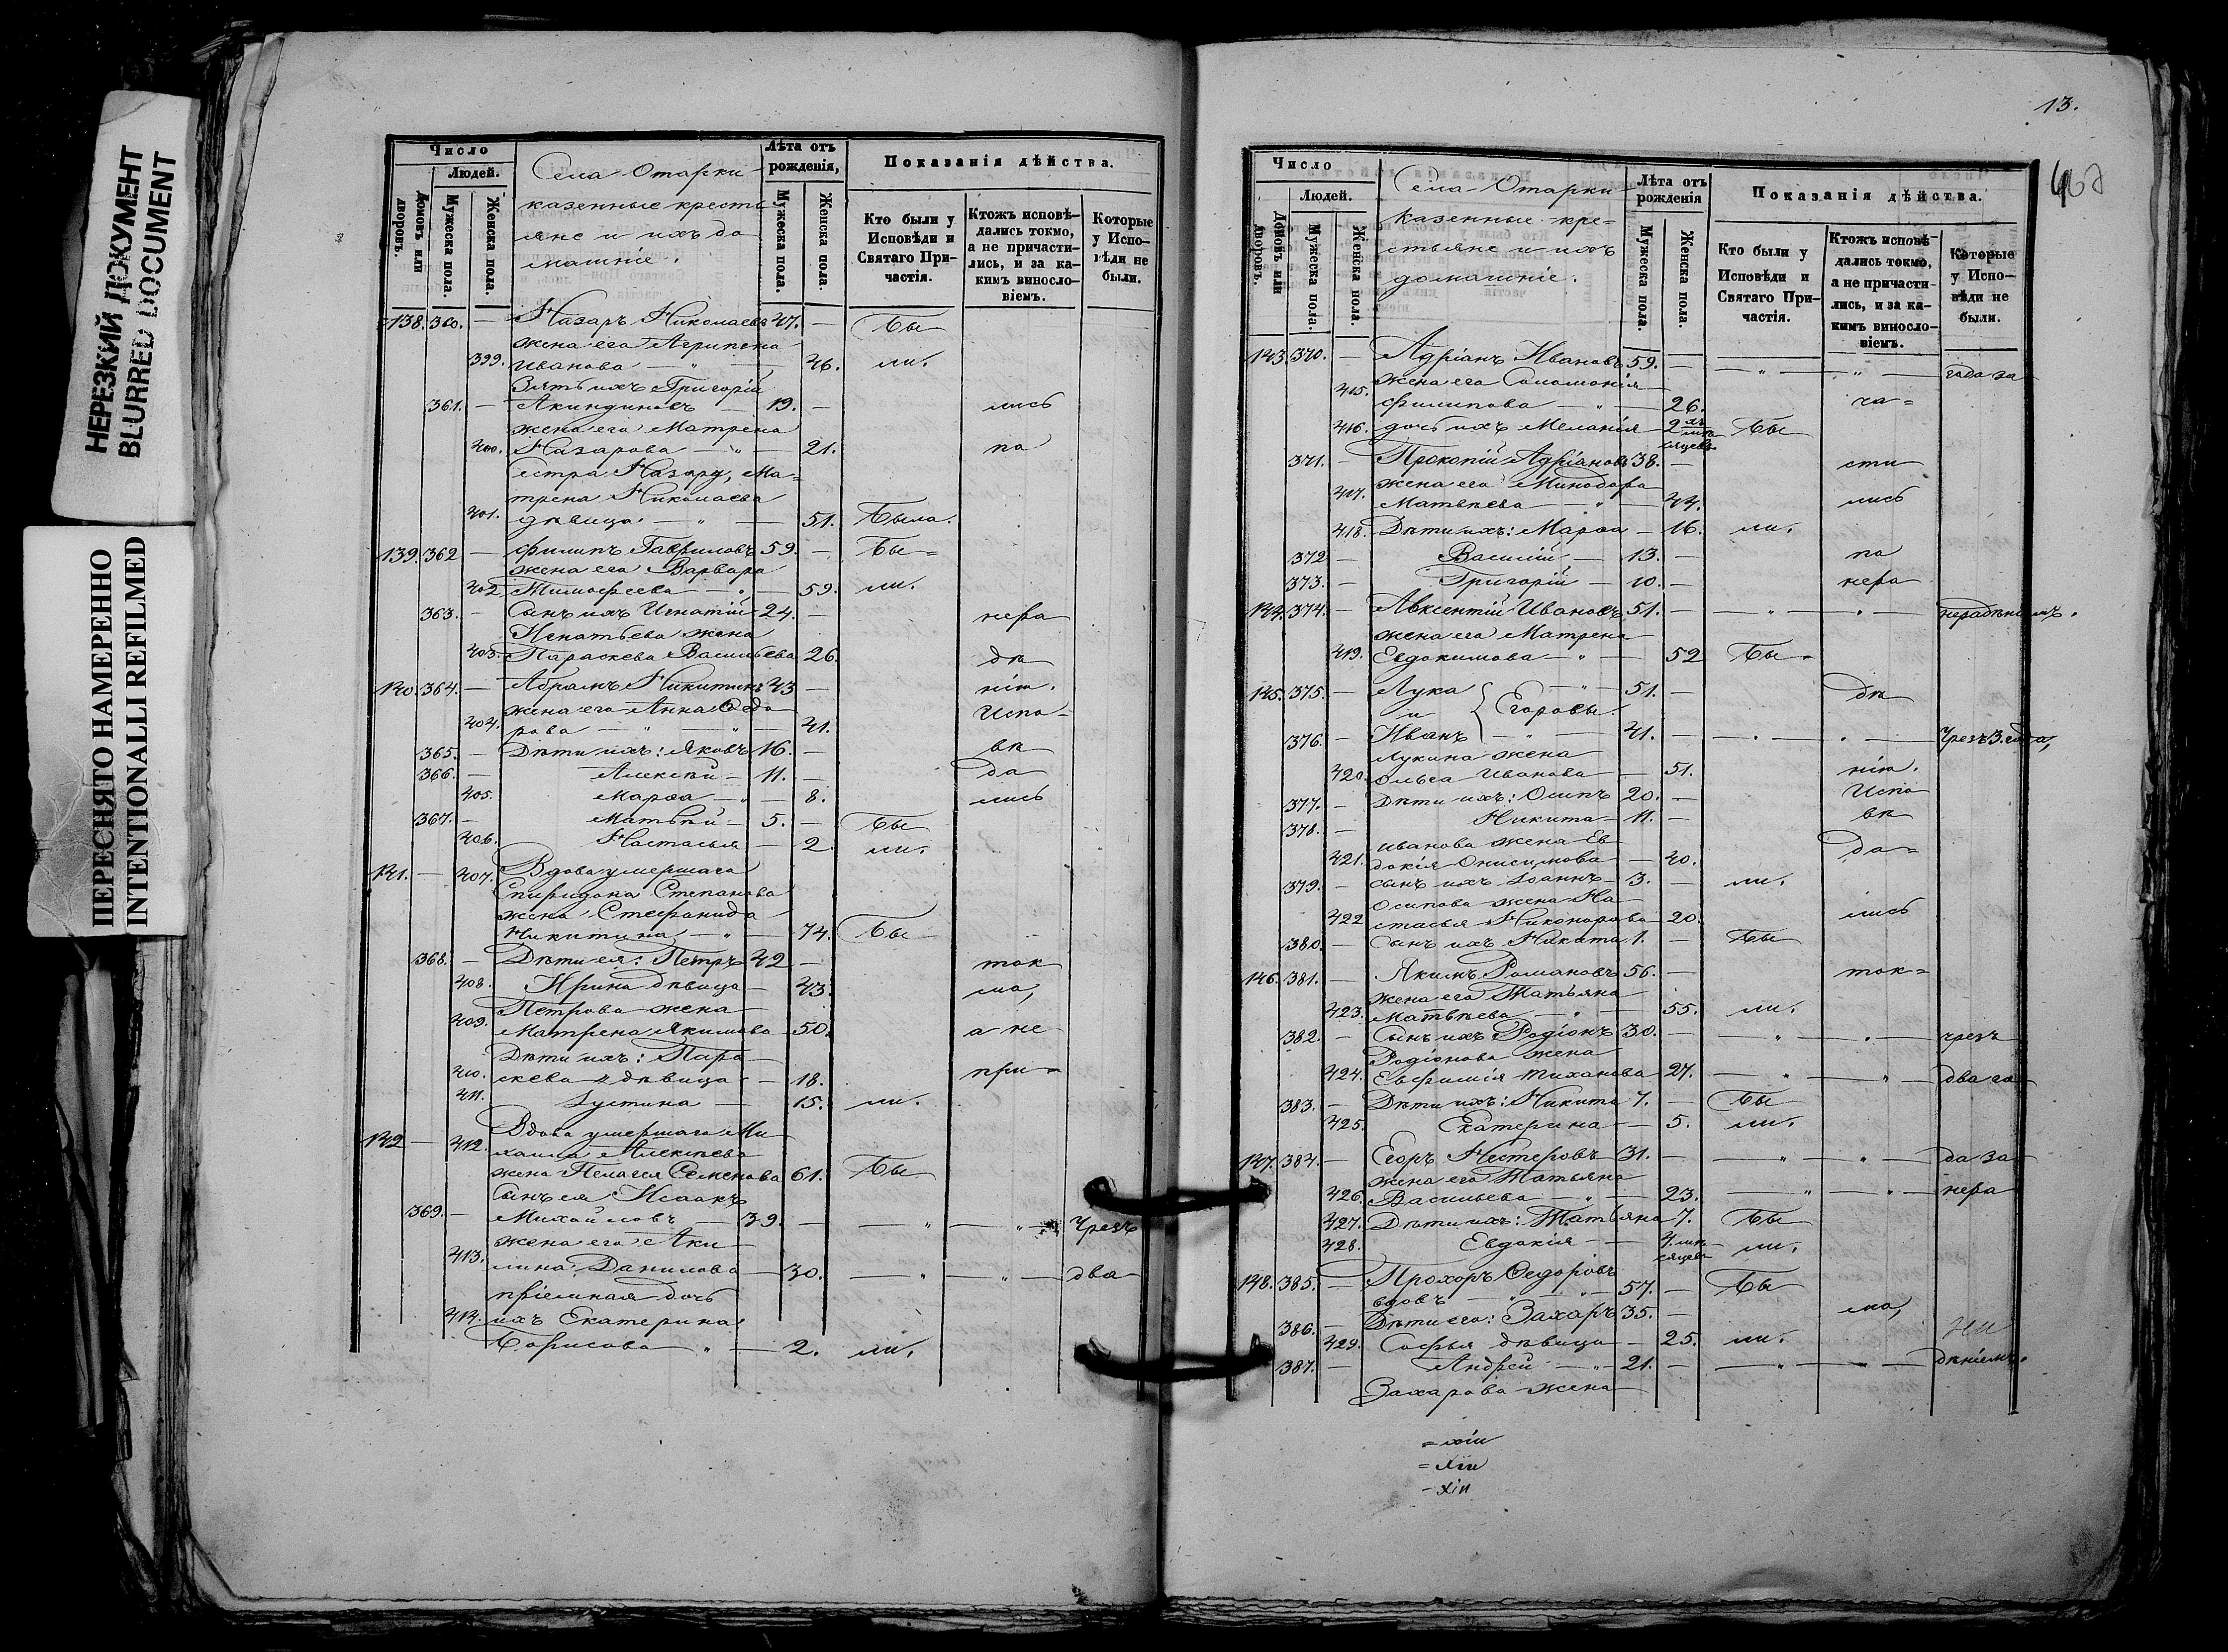 НЕРЕЗКИЙ ДОКУМЕНТ
BLURRED DOCUMENT
ПЕРЕСНЯТО НАМЕРЕННО
INTENTIONALLI REFILMED
Число
Людей.
Домовъ или дворовъ.
Мужеска пола.
Женска пола.
Села Отарки
казенные кресть
яне и ихъ до
машніе.
Лѣта отъ рожденія,
Мужеска пола.
Женска пола.
Показанія дѣйства.
Кто были у Исповѣди и Святаго Причастія.
Ктожъ исповѣ-
дались токмо,
а не причасти-
лись, и за ка-
кимъ винosло-
віемъ.
Которые
у Испо-
вѣди не
были.
138. 360. — Назаръ Николаевъ 47. — Бы
жена его Агрипена
399. Иванова — " — 46. ли.
Зять ихъ Григорій
361. — Акиндиновъ — 19. — лись
жена его Матрена
400. Назарова — " — 21. по
сестра Назару, Ма=
трена Николаева
401. дѣвица — " — 51. Была.
139. 362 — Филипъ Гавриловъ 59. — Бы=
жена его Варвара
402 Тимофеева — " — 59. ли.
363. — Сынъ ихъ Игнатій 24. — нера
Игнатьева жена
403. Параскева Васильева 26. дѣ
140. 364. — Абрамъ Никитинъ 43 — нію.
жена его Анна Ѳедо
404. рова — " — " — 41. Испо-
365. — Дѣти ихъ: Яковъ 16. — вѣ
366. — Алексѣй — 11. — да
405. Марѳа — " — 8. лись
367. — Матвѣй — 5. — Бы
406. Настасья — 2 ли.
141. — 407. Вдова умершаго
Спиридона Степанова
жена Стефанида
Никитина — " — 74. Бы
368. — Дѣти ея: Петръ 42 — ток
408. Ирина дѣвица — 43. мо,
Петрова жена
409. Матрена Якимова 50. а не
Дѣти ихъ: Пара
410. скева дѣвица — 18. при=
411. Іустина — 15. ли.
142 — 412. Вдова умершаго Ми
хаила Алексѣева
жена Пелагея Семенова 61. Бы
Сынъ ея Исаакъ
369. — Михайловъ — 39. — — " — " — Чрезъ
жена его Аку
413. лина Данилова — 30. — " — " — два
пріемная дочь
414. ихъ Екатерина
Борисова — " — 2. ли.
13.
Число
Людей.
Домовъ или дворовъ.
Мужеска пола.
Женска пола.
Села Отарки
казенные кре=
стьяне и ихъ
домашніе.
Лѣта отъ рожденія
Мужеска пола.
Женска пола.
Показанія дѣйства.
Кто были у Исповѣди и Святаго Причастія.
Ктожъ исповѣ-
дались токмо,
а не причасти-
лись, и за ка-
кимъ винosло-
віемъ.
Которые
у Испо-
вѣди не
были.
143. 370. — Адріанъ Ивановъ 59. — — " — " — года за
жена его Соломонія
415. Филипова — " — 26. ча=
416. дочь ихъ Меланія 2хъ мѣсяцевъ Бы
371. — Прокопій Адріановъ 38. — сти
жена его Минодора
417. Матвѣева — " — 44. лись
418. Дѣти ихъ: Марѳа — 16. ли.
372 — Василій — 13. — по
373. — Григорій — 10. — нера
144. 374. — Авксентій Ивановъ 51. — — " — " — нерадѣніемъ.
жена его Матрена
419. Евдокимова — " — 52 Бы=
145. 375. — Лука — " — 51. — дѣ
и } Егоровы.
376. — Иванъ — " — 41. — — " — " — Чрезъ 3. года,
Лукина жена
420. Ольга Иванова — 51. нію.
377. — Дѣти ихъ: Осипъ 20. — Испо
378. — Никита — 11. — вѣ
Иванова жена Ев
421. докія Онисимова — 40. да=
379. — сынъ ихъ Іоаннъ — 3. — ли.
Осипова жена На
422 стасья Никонорова 20. лись
380. — Сынъ ихъ Никита 1. — Бы
146. 381. — Якимъ Романовъ 56. — ток=
жена его Татьяна
423. Матвѣева — " — 55. ли.
382. — Сынъ ихъ Родіонъ 30. — — " — " — чрезъ
Родіонова жена
424. Евфимія Тиханова 27. — " — " — два го
383. — Дѣти ихъ: Никита 7. — Бы
425. Екатерина — 5. ли.
147. 384. — Егоръ Нестеровъ 31. — — " — " — да за
жена его Татьяна
426. Васильева — " — 23. — " — " — нера
427. Дѣти ихъ: Татьяна 7. Бы
428. Евдокія — 4. мѣсяцевъ ли.
148. 385. — Прохоръ Ѳедоровъ
вдовъ — " — " — 57. — Бы
386. — Дѣти его: Захаръ 35. — мо,
429. Софья дѣвица — 25. ли.
387. — Андрей — " — 21. — — " — " — дѣніемъ.
Захарова жена
= хiii
= хiii
- хiii